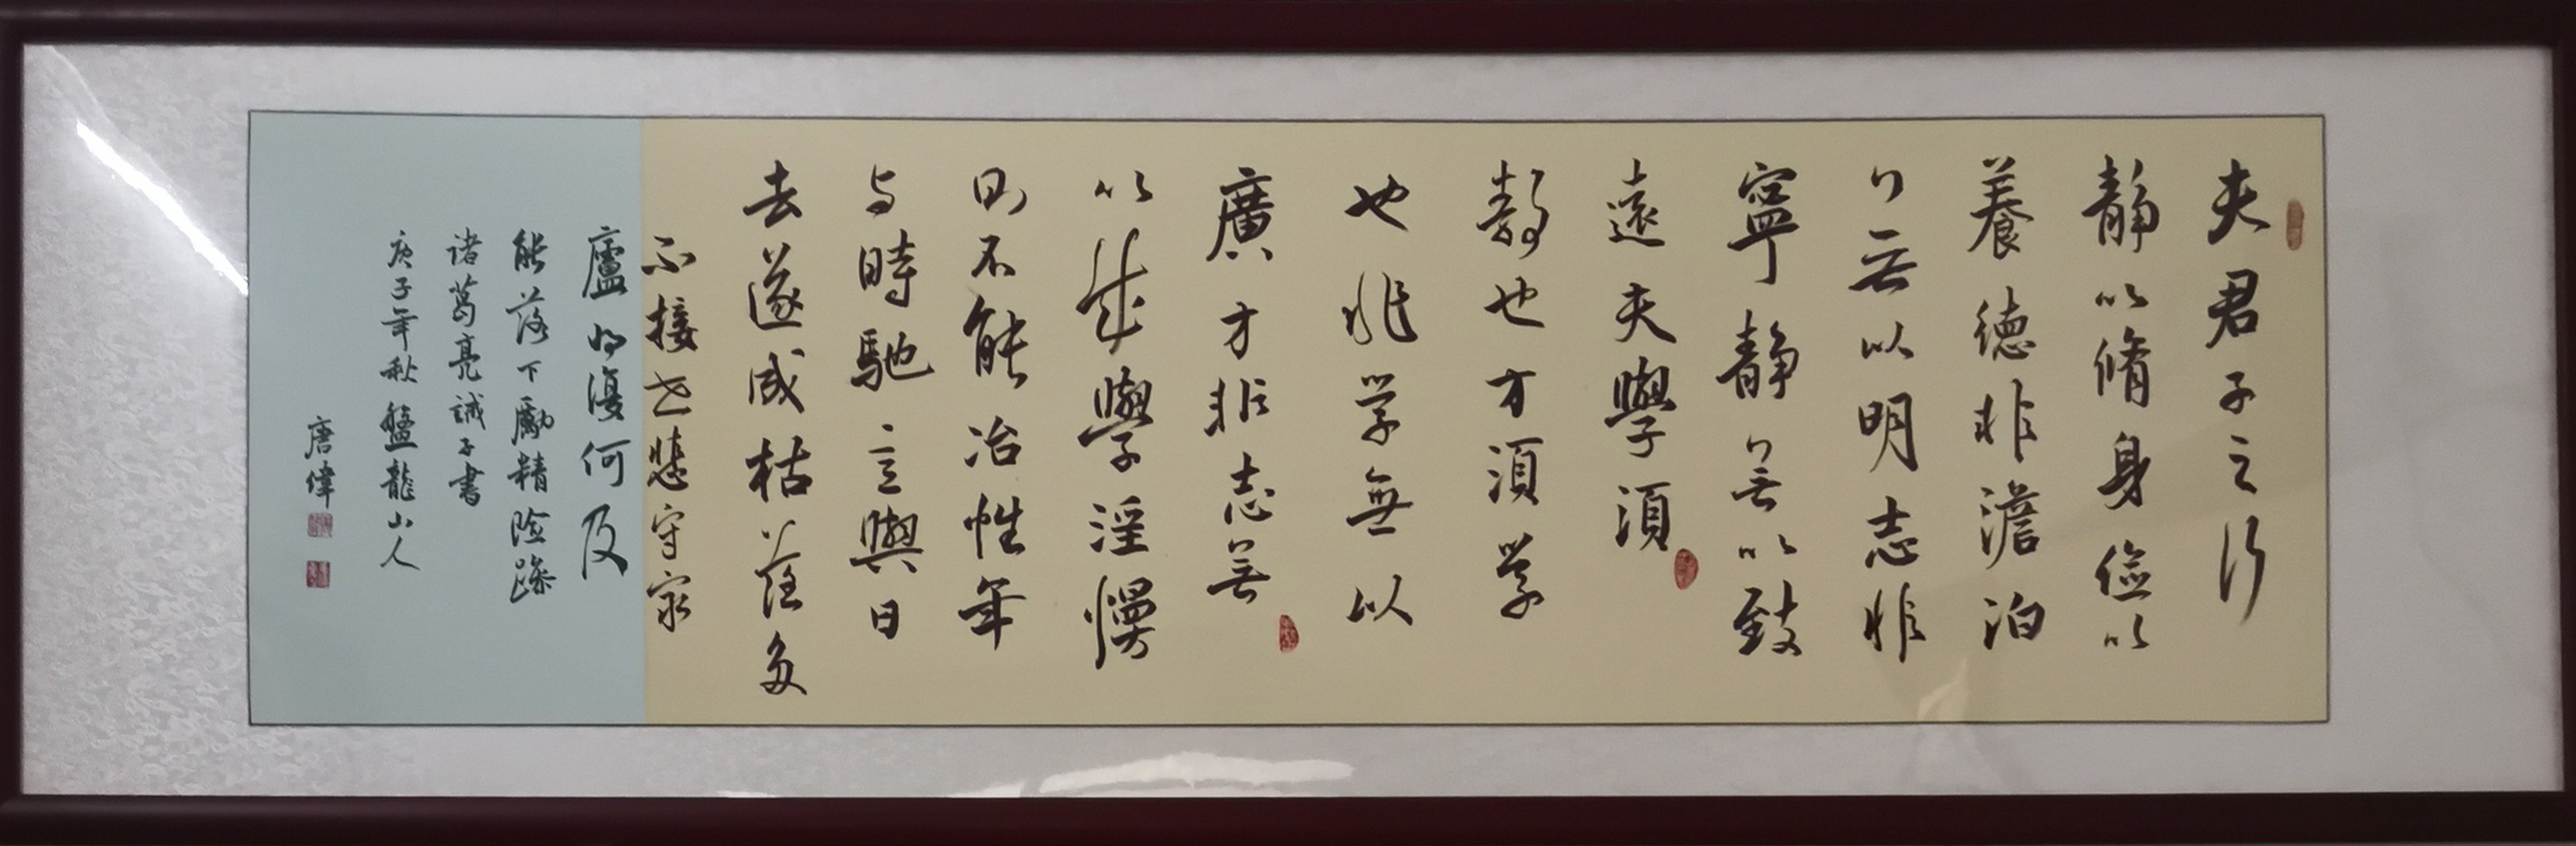 夫君子之行
靜以脩身儉以
養德非澹泊
無以明志非
寧靜無以致
遠夫學須
靜也才須學
也非学無以
廣才非志無
以成學淫慢
則不能冶性年
与時馳意與日
去遂成枯落多
不接世悲守窮
廬將復何及
能落下勵精险躁
诸葛亮誡子書
庚子年秋盤龍山人
唐偉